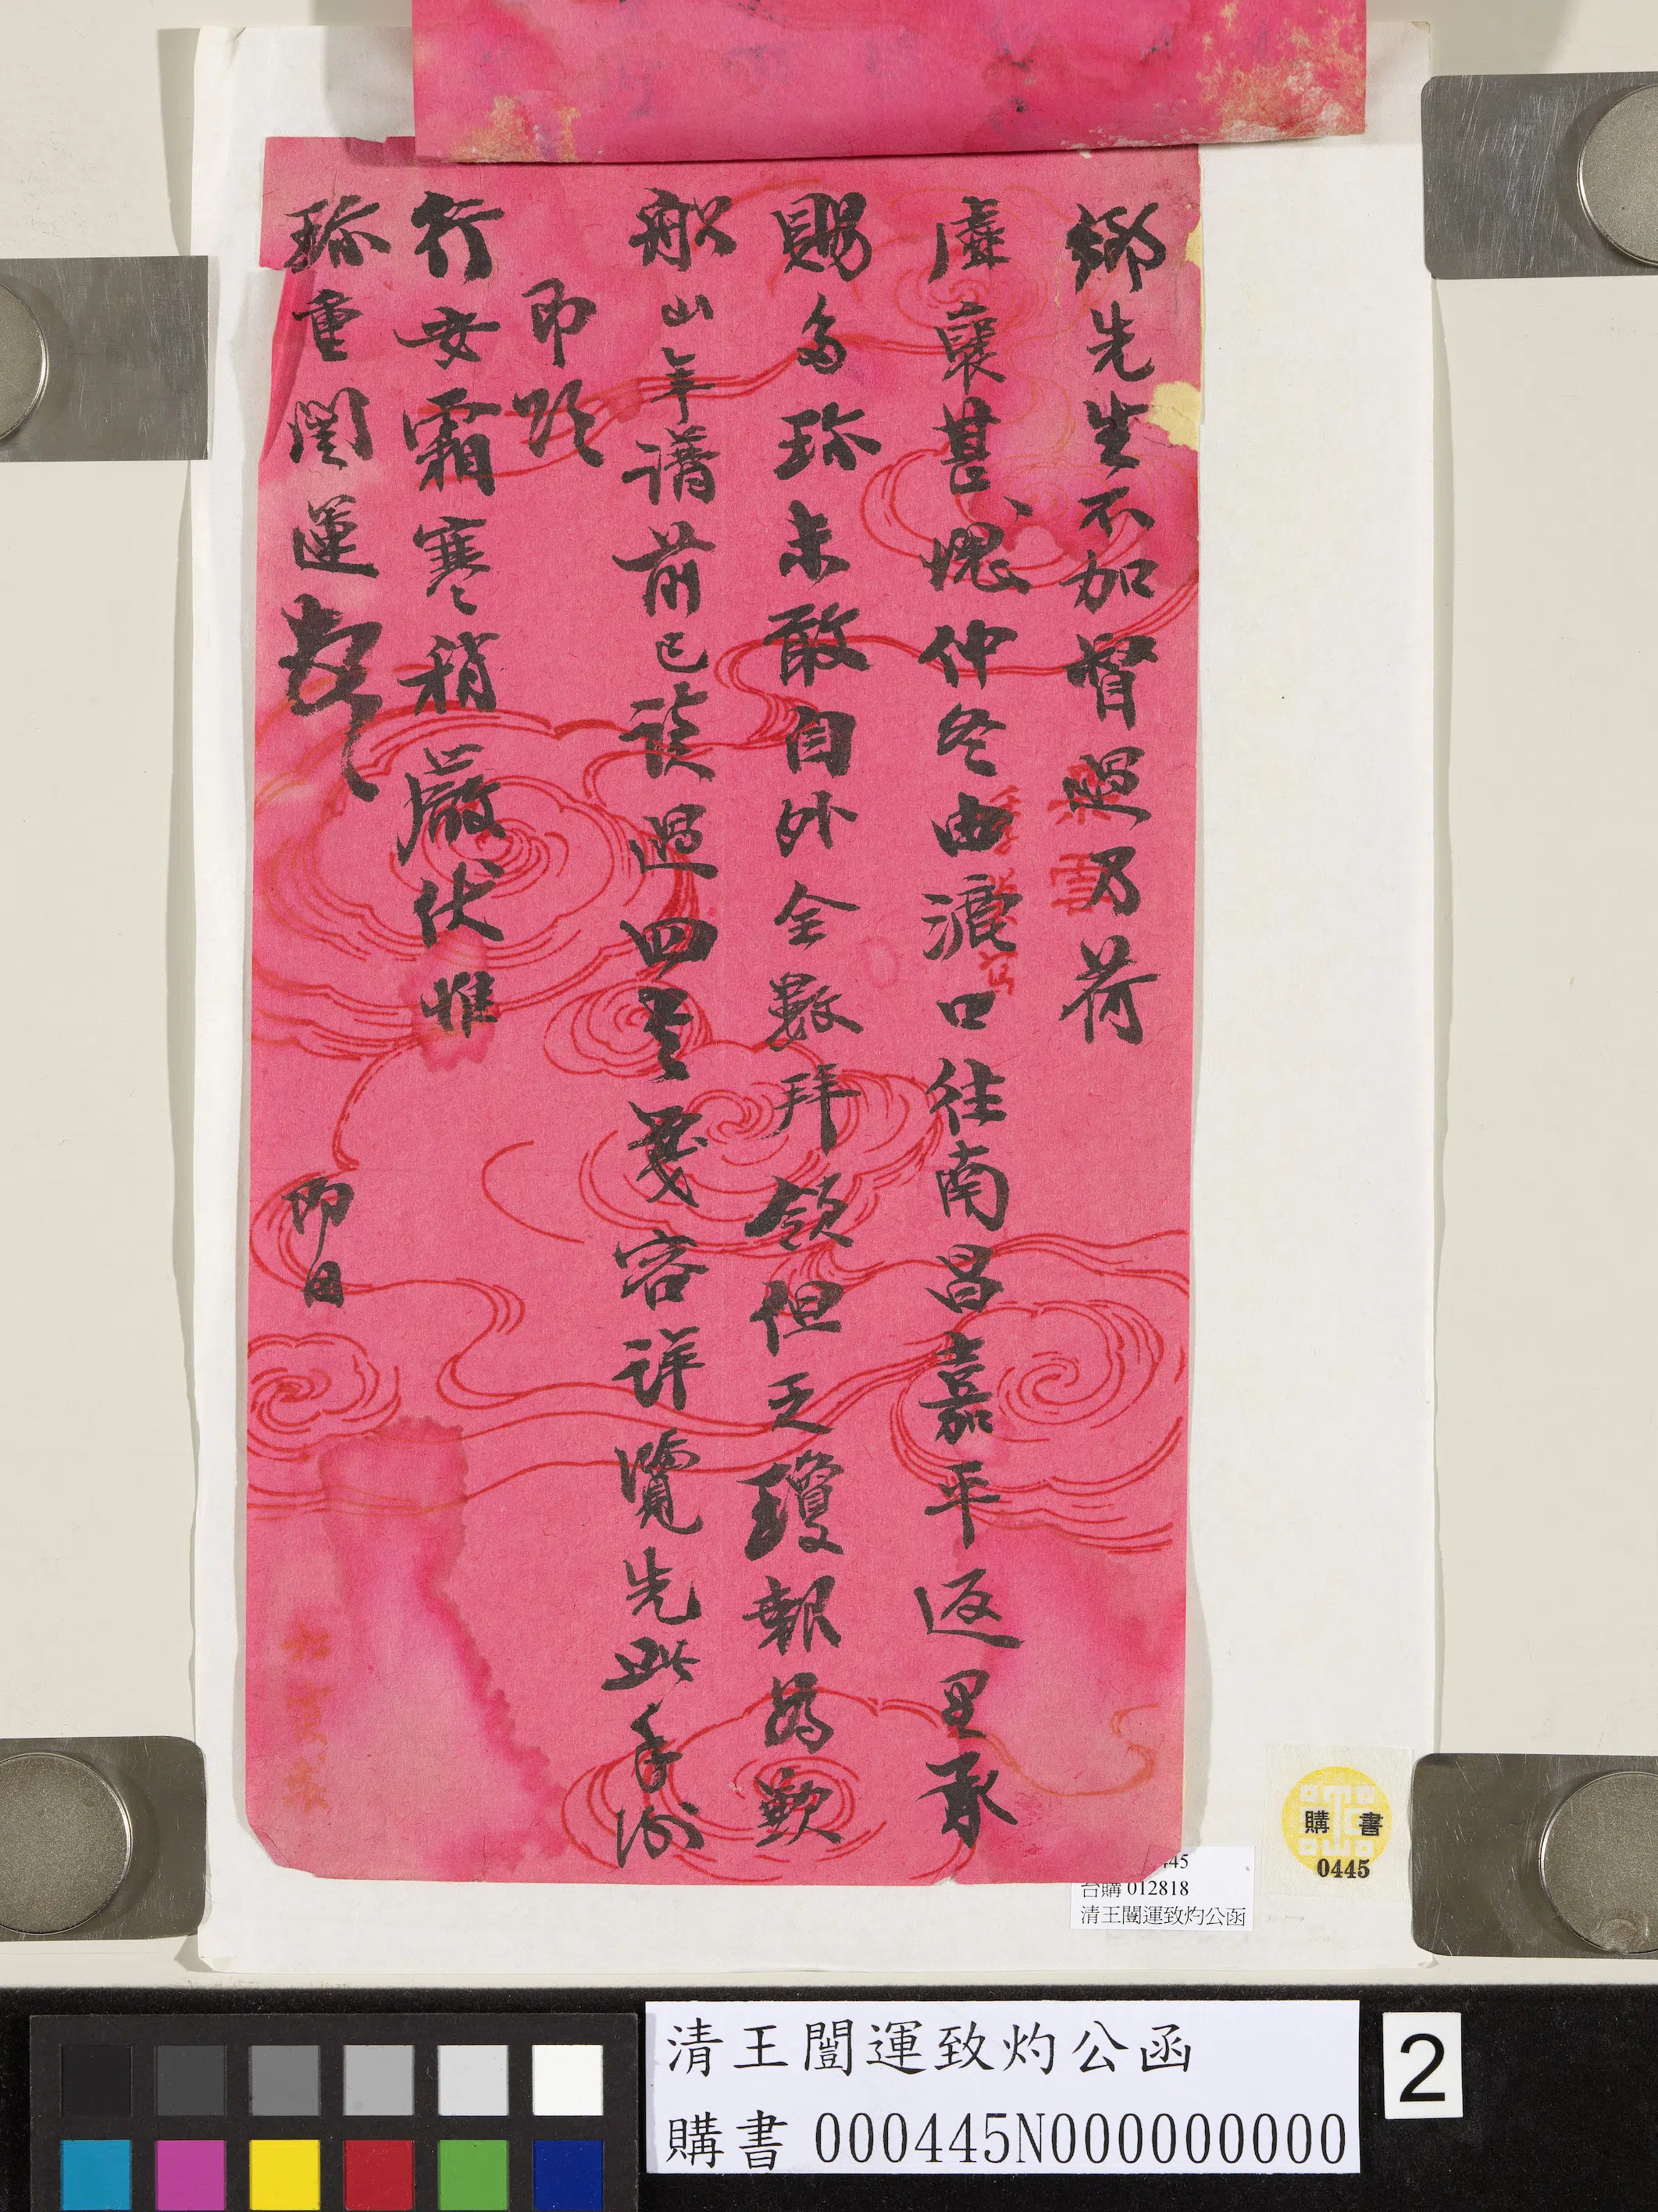 鄉先生不加督過乃荷
虛襃甚愧仲冬由漉口往南昌嘉平返里承
賜多珍未敢自外全數拜領但乏瓊報為歉
船山年譜前已讀過四 容詳覽先此手
即頌
行安霜寒稍嚴伏惟
珍重闓運
即日
445
台購 012818
清王闓運致灼公函
購書
0445
清王闓運致灼公函
購書 000445N000000000
2